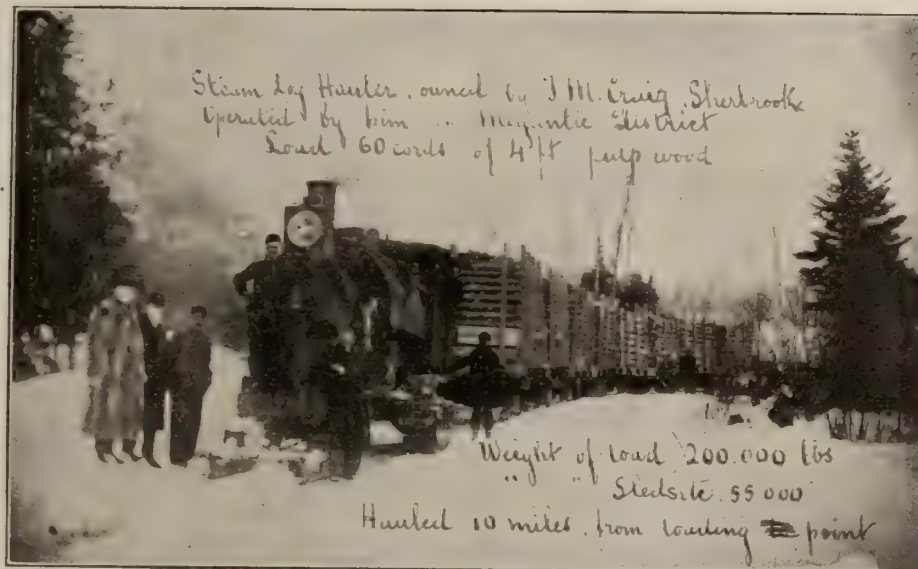 Steam Log Hauler, owned by J M. Craig, Sherbrooke
Operated by him in Megantic District
Load 60 cords of 4 ft pulp wood
Weight of load 200.000 lbs
" " 55 000
Hauled 10 miles, from loading point